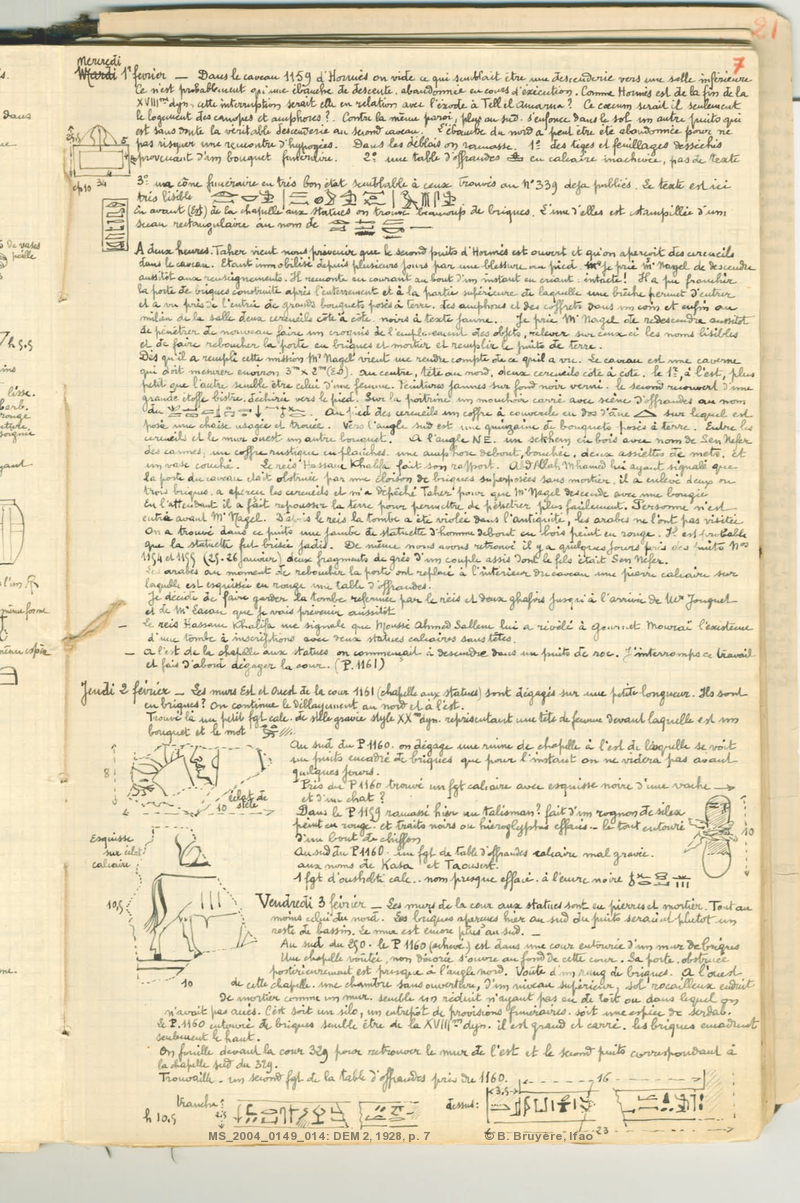 21
7
Mercredi
Mardi 1er février — Dans le caveau 1159 d'Hormès on vide ce qui semblait être une descenderie vers une salle inférieure
Ce n'est probablement qu'une ébauche de descente abandonnée en cours d'exécution. Comme Hormès est de la fin de la
XVIIIme dyn. cette interruption serait elle en relation avec l'éxode à Tell el Amarna ? Ce caveau serait il seulement
le logement des canopes et amphores ? Contre la même paroi, plus au sud s'enfonce dans le sol un autre puits qui
est sans doute la véritable descenderie au second caveau. L'ébauche du nord a peut être été abandonnée pour ne
pas risquer une rencontre d'hypogées. Dans les déblais on ramasse. 1º des tiges et feuillages desséchés
provenant d'un bouquet funéraire. 2º une table d'offrandes en calcaire inachevée, pas de texte
ep 10 34
3º un cône funéraire en très bon état semblable à ceux trouvés au Nº 339 déja publiés. Le texte est ici
très lisible
En avant (Est) de la chapelle aux statues on trouve beaucoup de briques. L'une d'elles est estampillée d'un
sceau rectangulaire au nom de
A deux heures. Taher vient nous prévenir que le second puits d'Hormès est ouvert et qu'on aperçoit des cercueils
dans le caveau. Etant immobilisé depuis plusieurs jours par une blessure au pied je prie Mr Nagel de descendre
aussitôt aux renseignements. Il remonte en courant au bout d'un instant en criant : intacte ! Il a pu franchir
la porte de briques construite après l'enterrement et à la partie supérieure de laquelle une brèche permet d'entrer
et a vu près de l'entrée de grands bouquets posés à terre. Des amphores et des coffrets dans un coin et enfin au
milieu de la salle deux cercueils côte à côte. noirs à texte jaune. Je prie Mr Nagel de redescendre aussitôt
de pénétrer de nouveau faire un croquis de l'emplacement des objets, relever sur eux ci les noms lisibles
et de faire reboucher la porte en briques et mortier et remplir le puits de terre.
Dès qu'il a rempli cette mission Mr Nagel vient me rendre compte de ce qu'il a vu. Le caveau est une caverne
qui doit mesurer environ 3m x 2m (E.O). au centre, tête au nord, deux cercueils côte à côte. le 1er, à l'est, plus
petit que l'autre semble être celui d'une femme. Peintures jaunes sur fond noir verni. le second recouvert d'une
grande étoffe bistre, déchirée vers le pied. Sur la poitrine un mouchoir carré avec scène d'offrandes au nom
du . Au pied des cercueils un coffre à couvercle en dos d'âne sur lequel est
posée une chaise usagée et trouée. Vers l'angle sud est une quinzaine de bouquets posés à terre. Entre les
cercueils et le mur ouest un autre bouquet. A l'angle N.E. un sekhem en bois avec nom de Sen Nefer
des cannes, un coffre rustique en planches. une amphore debout, bouchée, deux assiettes de mets, et
un vase couché. Le reis Hassane Khalifa fait son rapport. Abdallah Mhamed lui ayant signalé que
la porte du caveau était obstruée par une cloison de briques superposées sans mortier, il a enlevé deux ou
trois briques, a aperçu les cercueils et m'a dépêché Taher pour que Mr Nagel descende avec une bougie
En l'attendant il a fait repousser la terre pour permettre de pénétrer plus facilement. Personne n'est
entré avant Mr Nagel. D'après le reis la tombe a été violée dans l'antiquité, les arabes ne l'ont pas visitée
On a trouvé dans ce puits une jambe de statuette d'homme debout en bois peint en rouge. Il est probable
que la statuette fut brisée jadis. De même nous avons retrouvé il y a quelques jours près des puits Nos
1154 et 1155 (25-26 janvier) deux fragments de grès d'un couple assis dont le fils était Sen Nefer.
Les arabes au moment de reboucher la porte ont replacé à l'intérieur du caveau une pierre calcaire sur
laquelle est esquissée en rouge une table d'offrandes.
Je décide de faire garder la tombe refermée par le reis et deux ghafirs jusqu'à l'arrivée de Mr Jouguet
et de Mr Lacau que je vais prévenir aussitôt
— Le reis Hassane Khalifa me signale que Moussé Ahmed Sallem lui a révélé à Gournet Mouraï l'existence
d'une tombe à inscriptions avec deux statues calcaires sans têtes.
— à l'est de la chapelle aux statues on commençait à descendre dans un puits de roc. J'interromps ce travail
et fais d'abord dégager la cour. (P. 1161)
Jeudi 2 février — Les murs Est et Ouest de la cour 1161 (chapelle aux statues) sont dégagés sur une petite longueur. Ils sont
en briques ? On continue le déblayement au nord et à l'est.
Trouvé là un petit fgt calc. de stèle gravée style XXme dyn. représentant une tête de femme devant laquelle est un
bouquet et le mot
8
10
éclat de stèle
Au sud du P 1160. on dégage une ruine de chapelle à l'est de laquelle se voit
un puits encadré de briques que pour l'instant on ne videra pas avant
quelques jours.
Près du P 1160 trouvé un fgt calcaire avec esquisse noire d'une vache
et d'un chat ?
Dans le P 1159 ramassé hier un talisman ? fait d'un rognon de silex
peint en rouge. et traits noirs ou hiéroglyphes effacés – le tout entouré
d'un bout de chiffon
10
Au sud du P. 1160. un fgt de table d'offrandes calcaire mal gravée.
aux noms de Kasa et Taousert.
1 fgt d'oushabti calc. nom presque effacé. à l'encre noire
Esquisse
sur éclat
calcaire
10,5
10
Vendredi 3 février — Les murs de la cour aux statues sont en pierres et mortier. Tout au
moins celui du nord. Les briques aperçues hier au sud du puits seraient plutot un
reste de bassin. Le mur est encore plus au sud. —
Au sud du 250. le P 1160 (achevé) est dans une cour entourée d'un mur de briques
Une chapelle voûtée, non décorée s'ouvre au fond de cette cour. Sa porte obstruée
postérieurement est presque à l'angle nord. Voûte d'un rang de briques. A l'ouest
de cette chapelle une chambre sans ouverture, d'un niveau supérieur, sol rocailleux enduit
de mortier comme un mur. semble un réduit n'ayant pas eu de toit ou dans lequel on
n'avait pas accès. C'est soit un silo, un entrepôt de provisions funéraires. soit une espèce de serdab.
Le P. 1160 entouré de briques semble être de la XVIIIme dyn. il est grand et carré. les briques encadrent
seulement le haut.
On fouille devant la cour 329 pour retrouver le mur de l'est et le second puits correspondant à
la chapelle sud du 329.
Trouvaille. un second fgt de la table d'offrandes près du 1160.
16
3,5
tranche :
h 10,5
2,5
dessus :
23
MS_2004_0149_014: DEM 2, 1928, p. 7
© B. Bruyère, Ifao